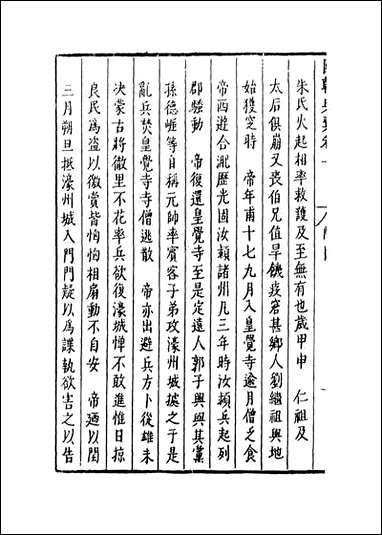 朱氏火起相率救護及至無有也歲甲申　仁祖及
太后俱崩又喪伯兄值旱饑疫窘甚鄉人劉繼祖與地
始獲窆時　帝年甫十七九月入皇覺寺逾月僧乏食
帝西遊合淝歷光固汝潁諸州凡三年時汝潁兵起列
郡騷動　帝復還皇覺寺至是定遠人郭子興與其黨
孫德崖等自稱元帥率賓客子弟攻濠州城據之于是
亂兵焚皇覺寺寺僧逃散　帝亦出避兵方卜從雄未
決蒙古將徹里不花率兵欲復濠城憚不敢進惟日掠
良民爲盜以徼賞皆恟恟相扇動不自安　帝迺以閏
三月朔旦抵濠州城入門門疑以爲諜執欲害之以告